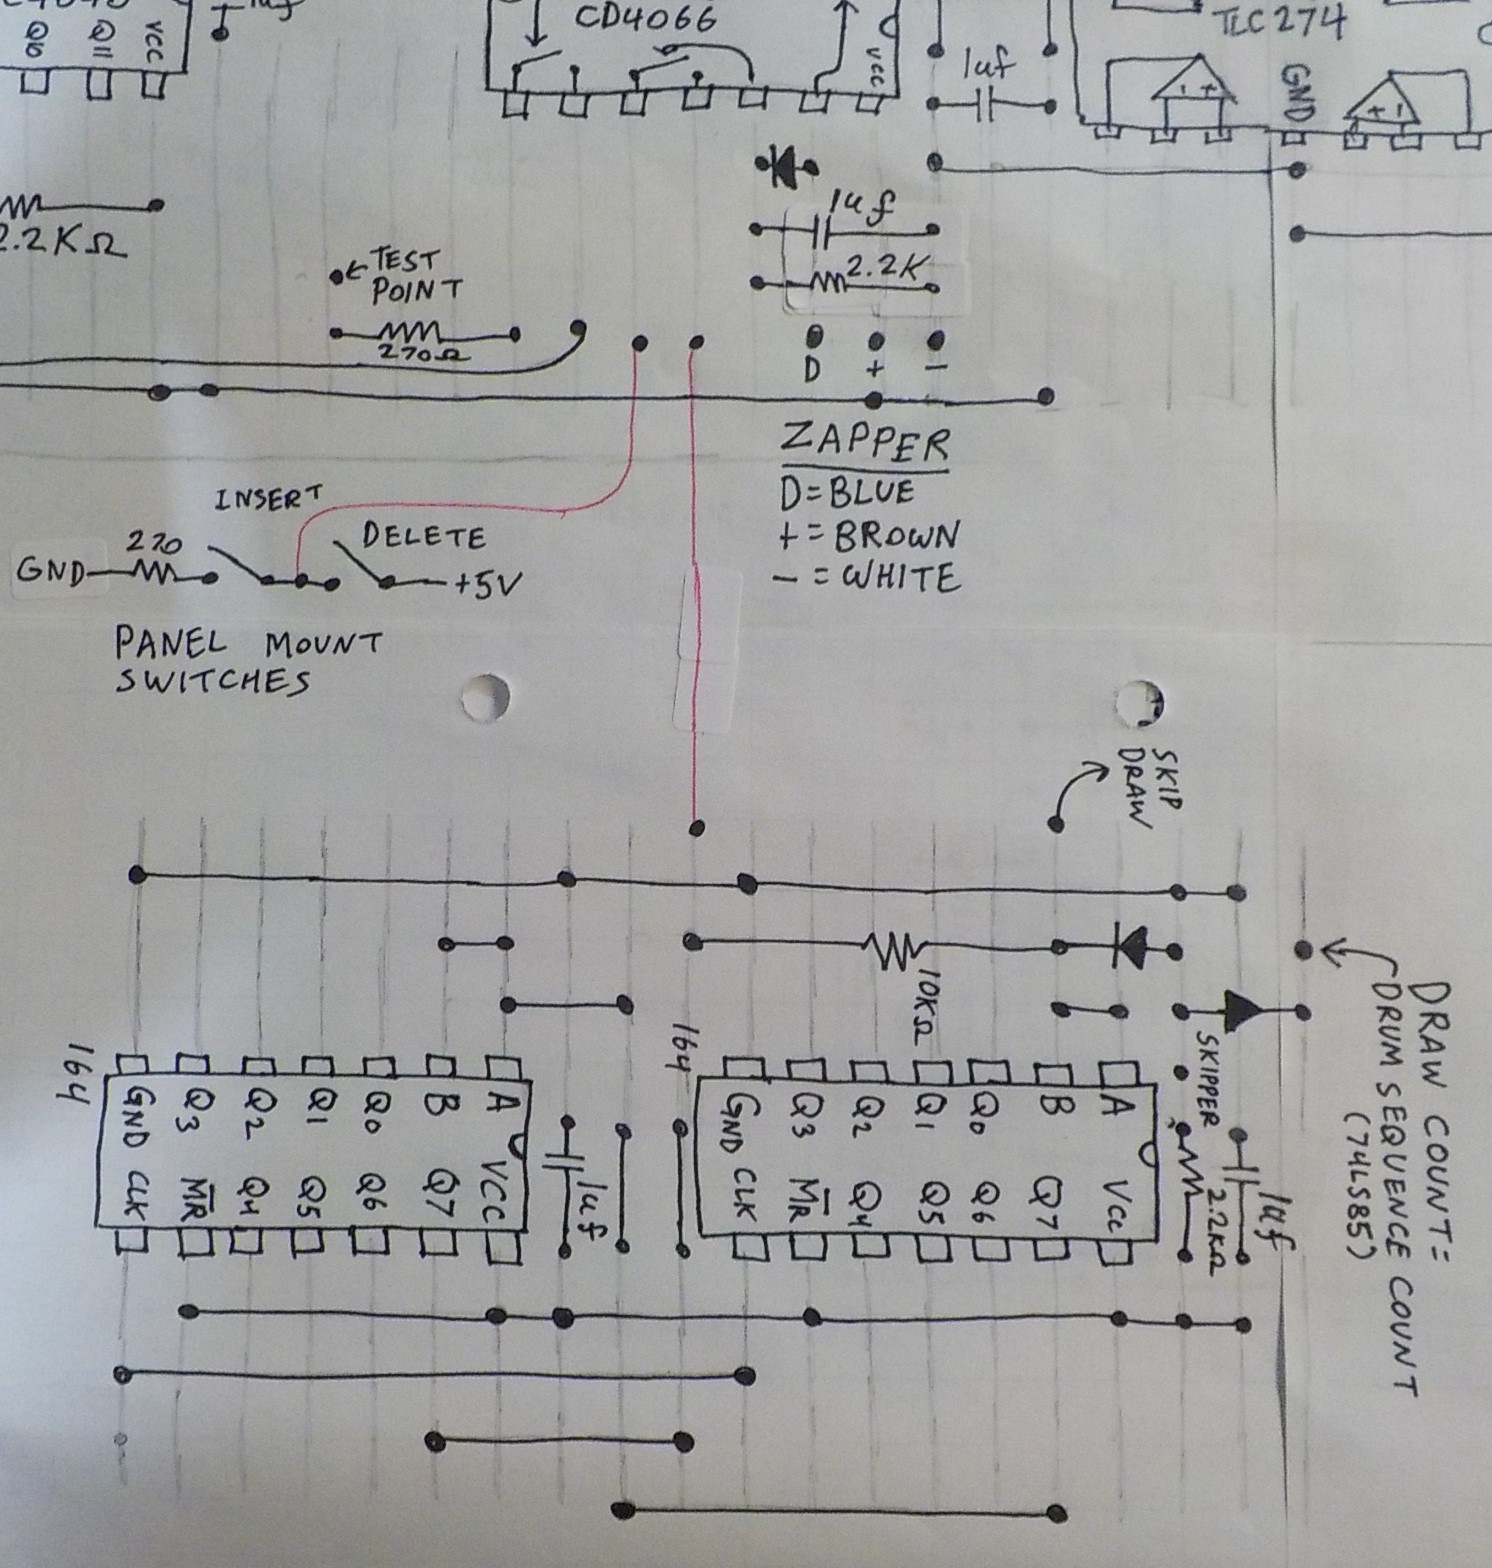 Q10
Q11
VCC
1uf
CD4066
VCC
1uf
TLC274
- +
GND
+ -
2.2KΩ
TEST
POINT
270Ω
1uf
2.2K
D + -
ZAPPER
D=BLUE
+=BROWN
-=WHITE
INSERT
DELETE
GND
270
+5V
PANEL MOUNT
SWITCHES
SKIP
DRAW
10KΩ
DRAW COUNT=
DRUM SEQUENCE COUNT
(74LS85)
SKIPPER
2.2KΩ
1uf
164
GND Q3 Q2 Q1 Q0 B A
CLK M̅R̅ Q4 Q5 Q6 Q7 VCC
1uf
164
GND Q3 Q2 Q1 Q0 B A
CLK M̅R̅ Q4 Q5 Q6 Q7 Vcc